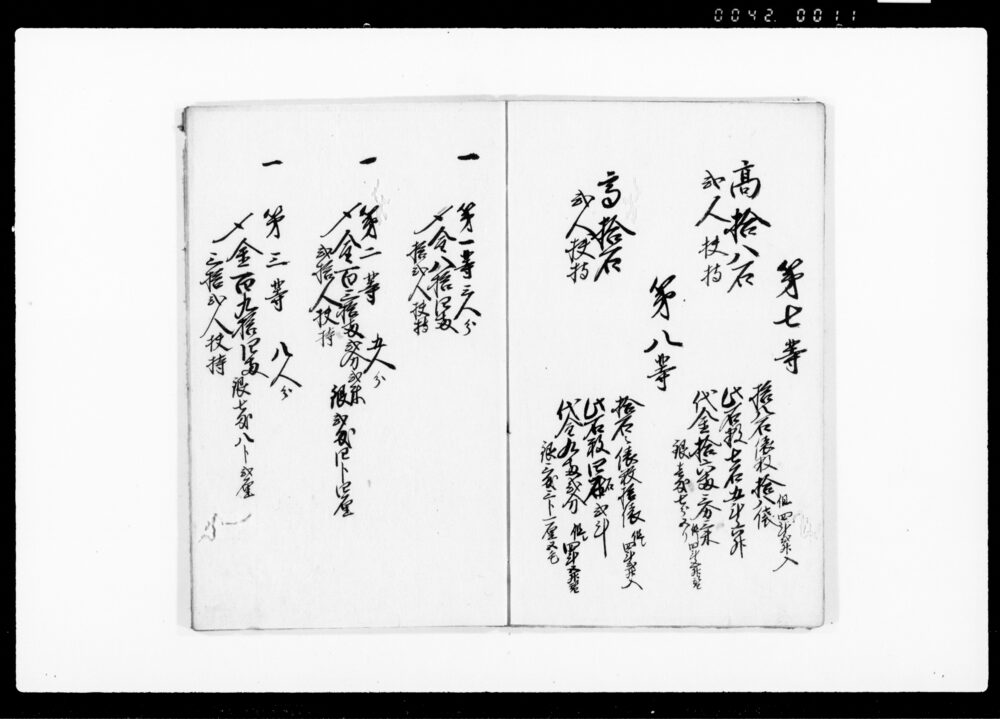 0042.0011
第七等
高拾八石
弐人扶持
拾八石俵数拾八俵
但四斗弐升入
此石数七石五斗六升
代金拾六両三分三朱
銀壱匁七分五り
第八等
高拾石
弐人扶持
拾石俵数拾俵
但四斗弐升入
此石数四石弐斗
代金九両弐分
銀三匁三分一厘
一 第一等 三人分
〆金八拾四両
拾弐人扶持
一 第二等 五人分
〆金百三拾両弐分弐朱
銀弐匁四分四厘
弐拾人扶持
一 第三等 八人分
〆金百九拾四両
銀七匁八分弐厘
三拾弐人扶持